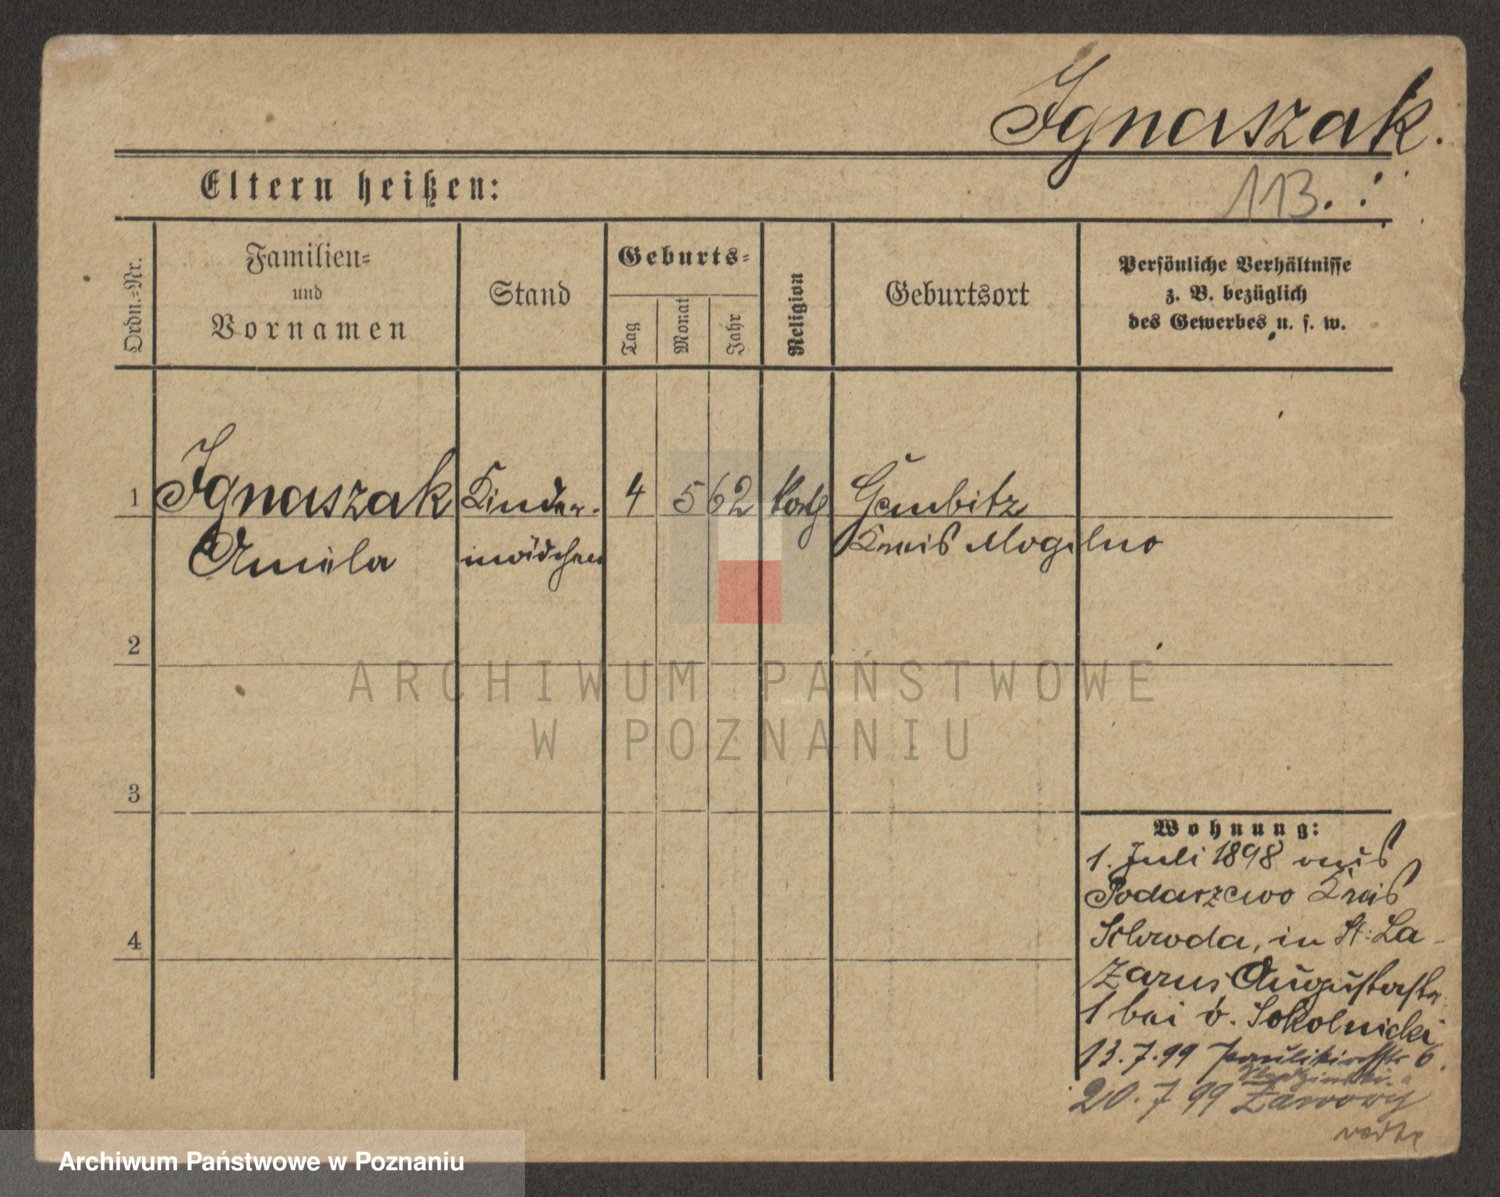 Ignaszak.
113.
Eltern heißen:
Ordn.-Nr.
Familien-
und
Vornamen
Stand
Geburts-
Tag
Monat
Jahr
Religion
Geburtsort
Persönliche Verhältnisse
z. B. bezüglich
des Gewerbes u. s. w.
1 Ignaszak Kinder- 4 5 62 kath Gembitz
Aniela mädchen Kreis Mogilno
2
3
4
ARCHIWUM PAŃSTWOWE
W POZNANIU
Wohnung:
1. Juli 1898 aus
Podarzewo Kreis
Schroda, in St: La-
zarus Augustastr.
1 bei v. Sokolnicki
13.7.99 Paulikirchstr 6.
20.7.99
Archiwum Państwowe w Poznaniu